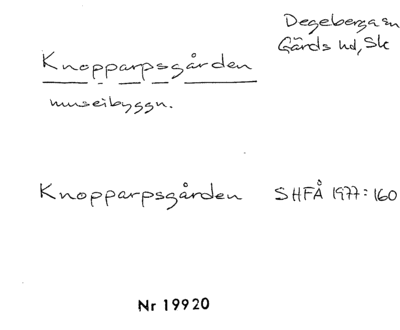 Degeberga sn
Gärds hd, Sk
Knopparpsgården
museibyggn.
Knopparpsgården SHFÅ 1977:160
Nr 19920